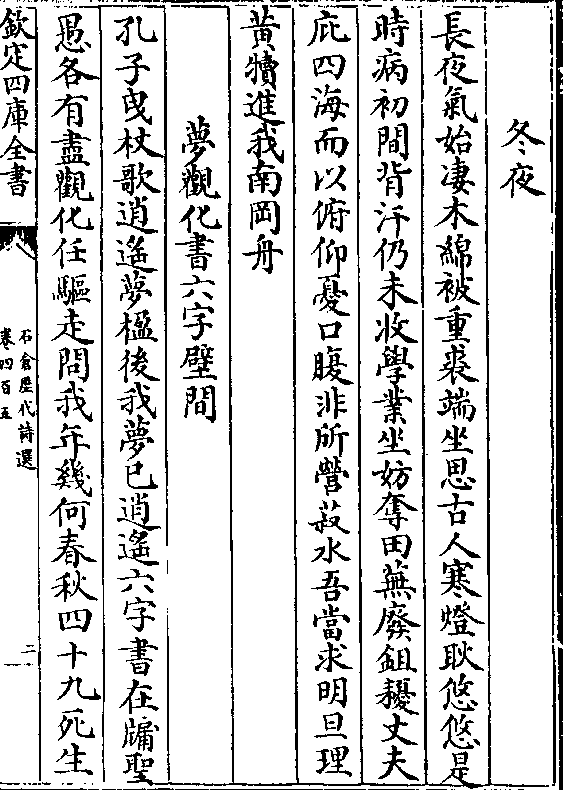 冬夜
長夜氣始凄木綿被重裘端坐思古人寒燈耿悠悠是
時病初間背汗仍未收學業坐妨奪田蕪廢鉏耰丈夫
庇四海而以俯仰憂口腹非所營菽水吾當求明旦理
黄犢進我南岡舟
夢觀化書六字壁間
孔子曳杖歌逍遙夢楹後我夢已逍遙六字書在牖聖
愚各有盡觀化任驅走問我年幾何春秋四十九死生
欽定四庫全書
石倉歷代詩選
卷四百五
二